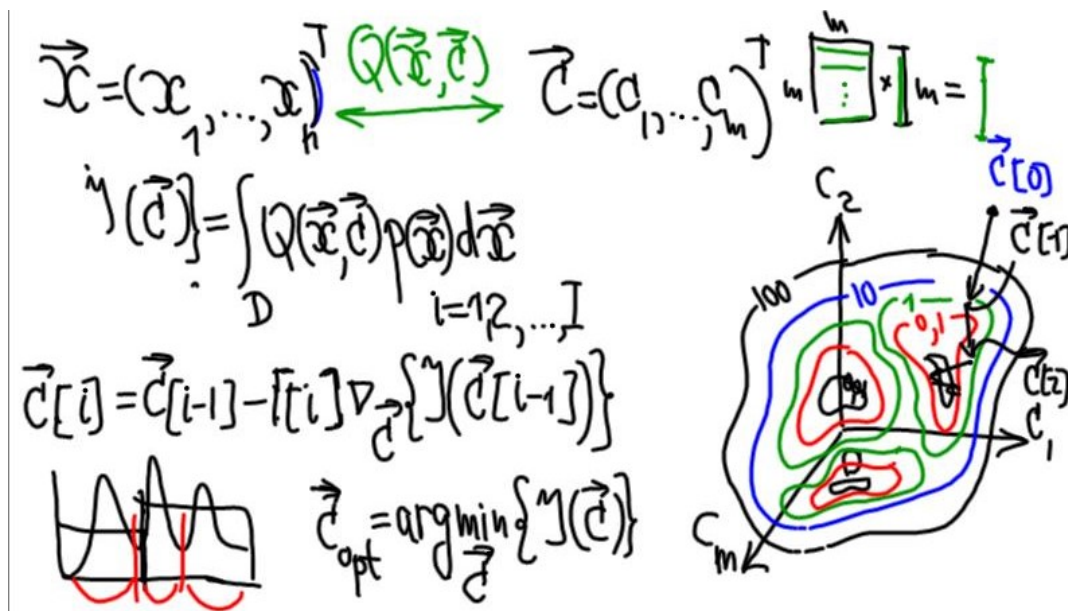 x⃗ = (x₁, ..., xₙ)ᵀ Q(x⃗, c⃗) c⃗ = (c₁, ..., cₘ)ᵀ m m × m =
J(c⃗)} = ∫_D Q(x⃗, c⃗) p(x⃗) dx⃗
i=1,2, ..., I
c⃗[i] = c⃗[i-1] - Γ[i] ∇_c⃗ {J(c⃗[i-1])}
c⃗_opt = arg min_c⃗ {J(c⃗)}
c⃗[0]
C₂
c⃗[1]
100 10 1 0,1
c⃗[2]
C₁
Cₘ